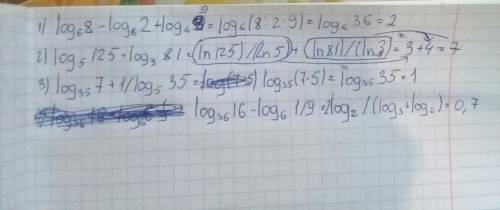 1) log₆8 - log₆2 + log₆9 = log₆(8:2·9) = log₆36 = 2
2) log₅125 + log₃81 = (ln125)/(ln5) + (ln81)/(ln3) = 3+4 = 7
3) log₃₅7 + 1/log₅35 = log₃₅(7·5) = log₃₅35 = 1
log₃₆16 - log₆1/9 = 2log₂/(log₃+log₂) = 0,7